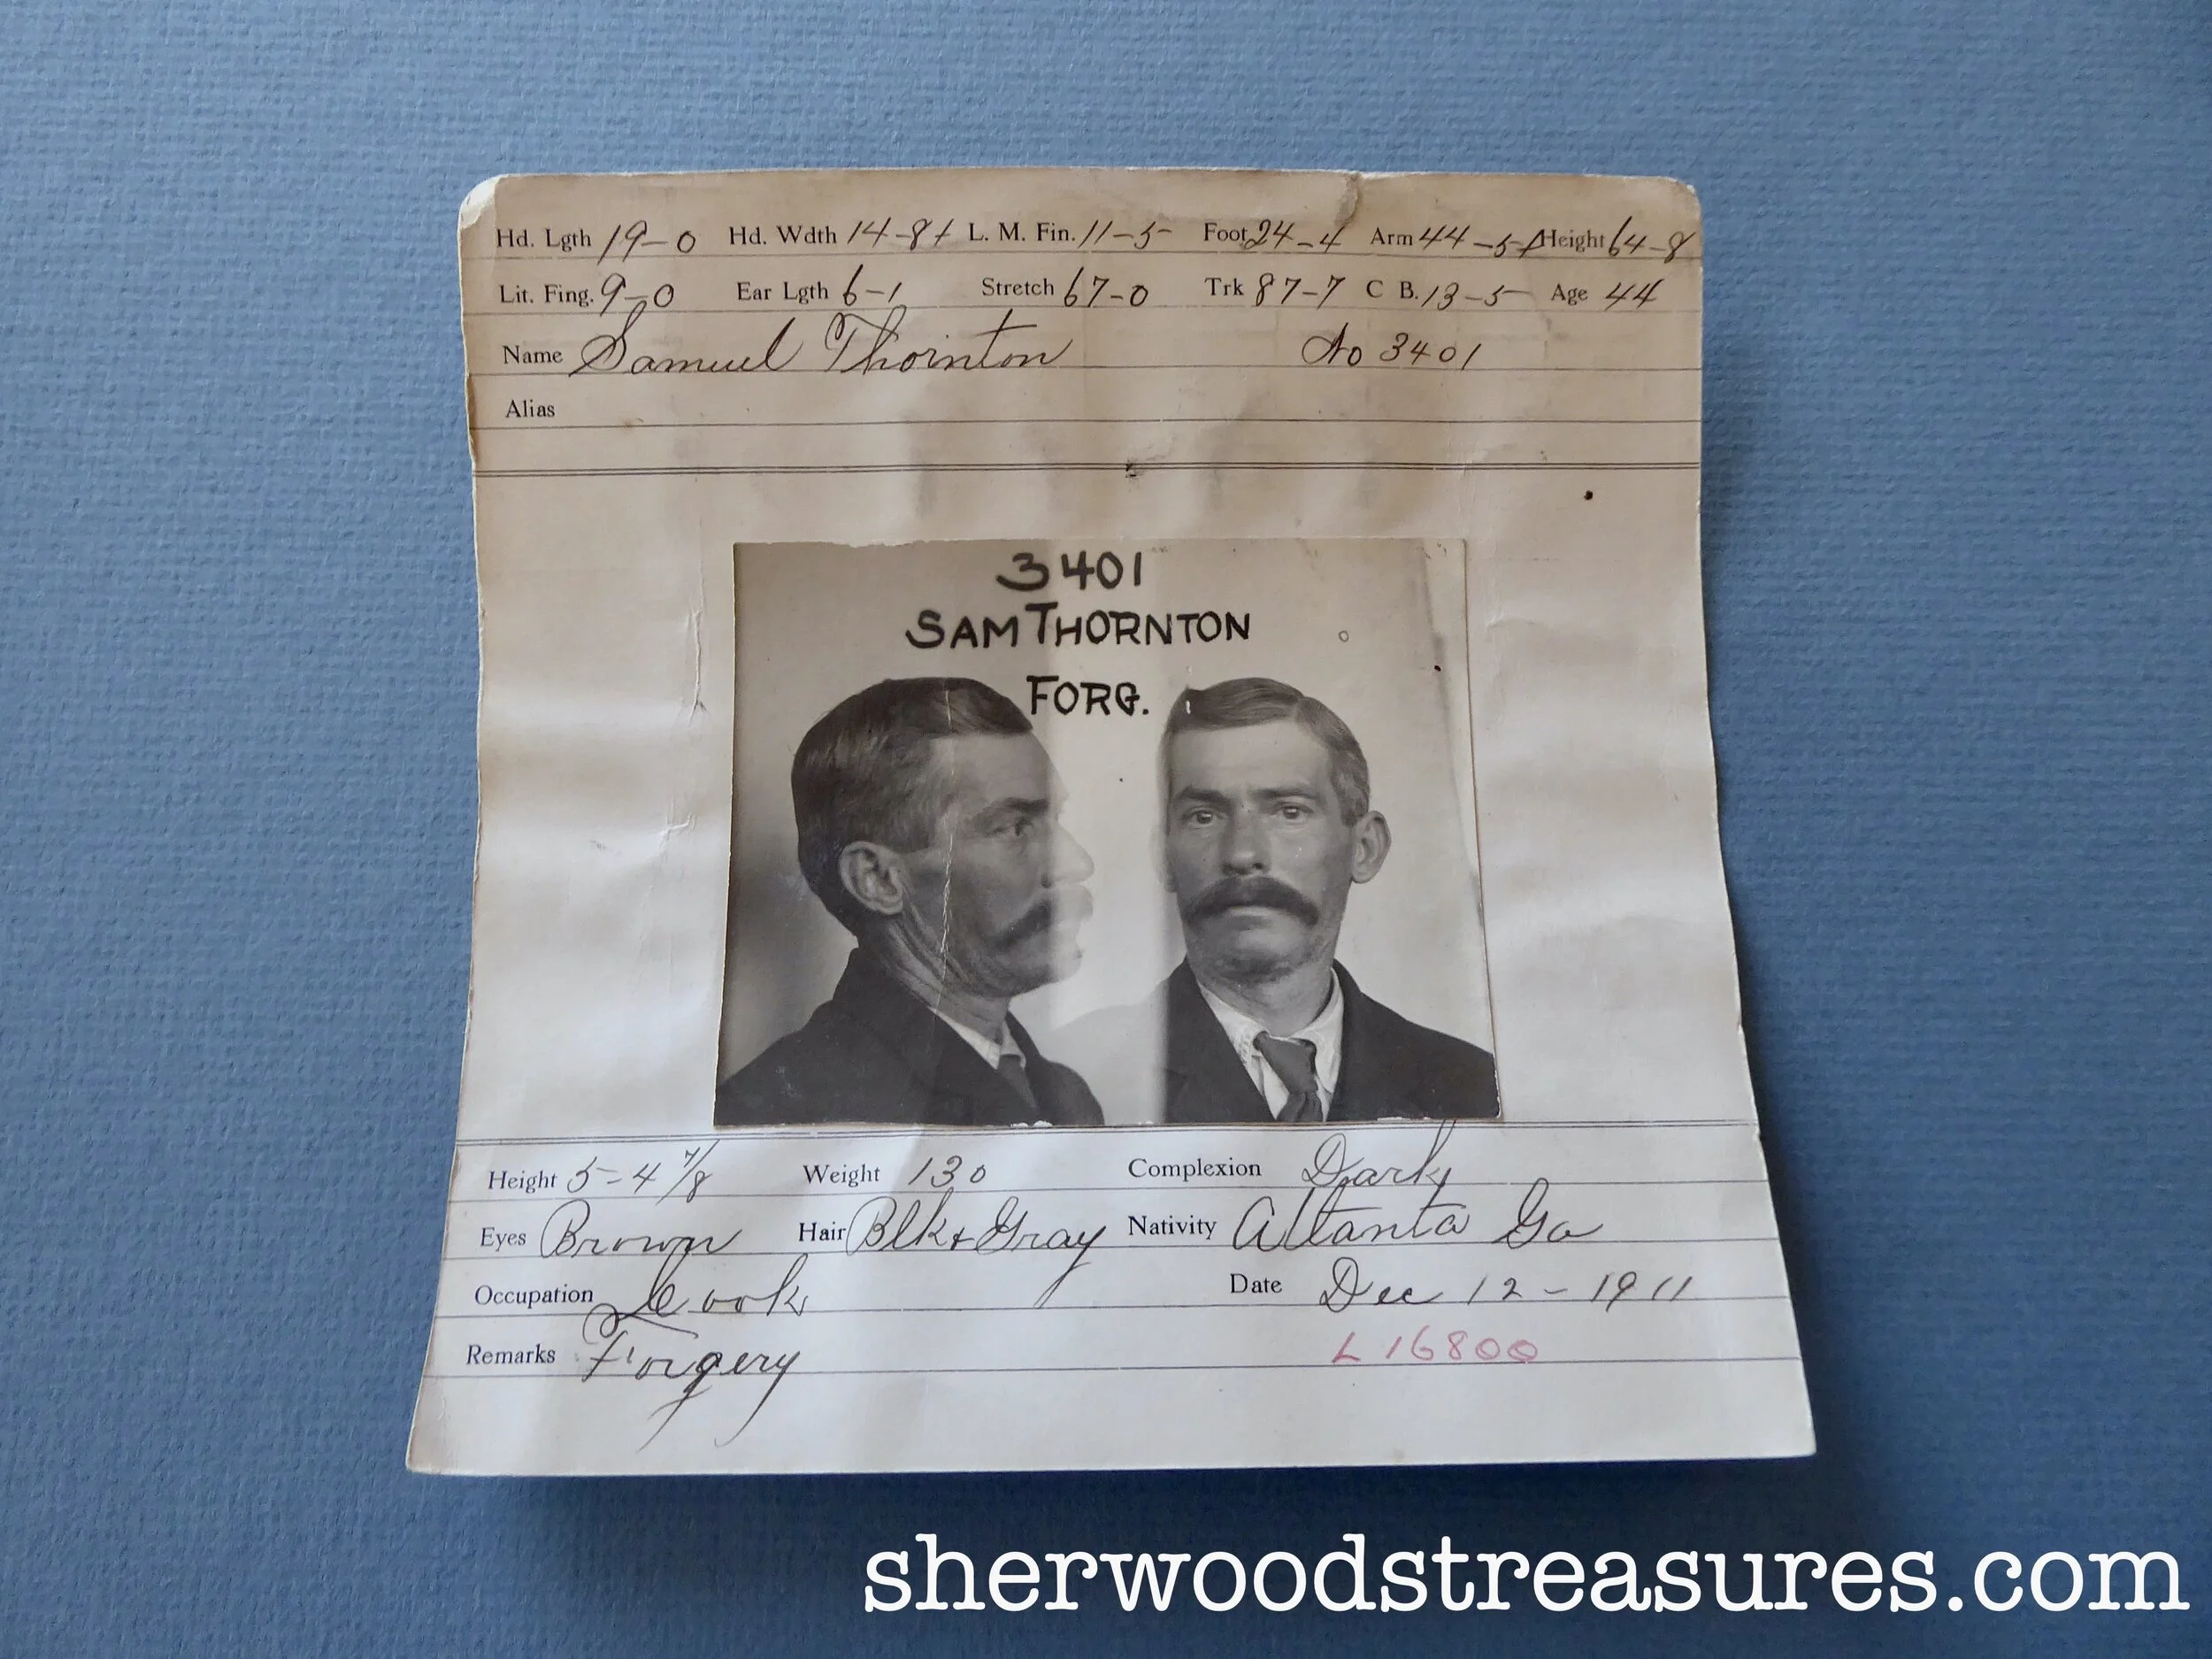 Hd. Lgth 19-0 Hd. Wdth 14-8+ L. M. Fin. 11-5 Foot 24-4 Arm 44-5+ Height 64-8
Lit. Fing. 9-0 Ear Lgth 6-1 Stretch 67-0 Trk 87-7 C B. 13-5 Age 44
Name Samuel Thornton No 3401
Alias
3401
SAM THORNTON
FORG.
Height 5-4 7/8 Weight 130 Complexion Dark
Eyes Brown Hair Blk & Gray Nativity Atlanta Ga
Occupation Cook Date Dec 12-1911
Remarks Forgery L 16800
sherwoodstreasures.com